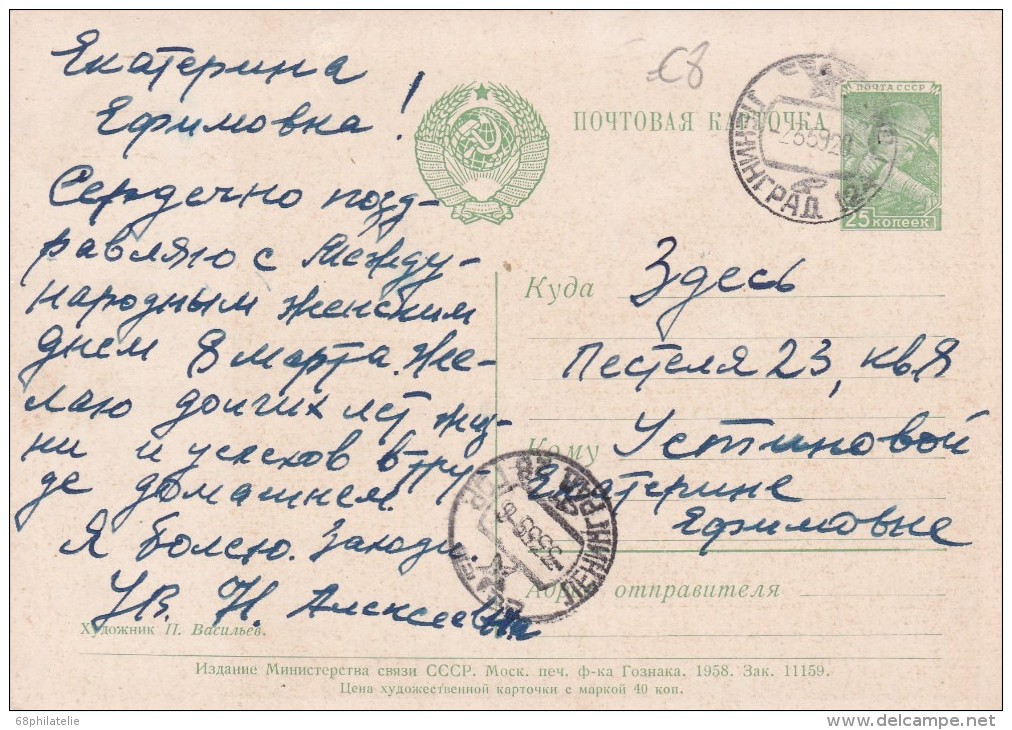 Екатерина
Ефимовна!
Сердечно позд-
равляю с Между-
народным женским
днем 8 марта. Же-
лаю долгих лет жиз-
ни и успехов в тру-
де домашнем.
Я болею. Заходи.
Ув. Н. Алексеевна
С8
ПОЧТОВАЯ КАРТОЧКА
ПОЧТА СССР
25 копеек
ЛЕНИНГРАД
Куда
Здесь
Пестеля 23, кв 8
Кому
Устиновой
Екатерине
Ефимовне
ЛЕНИНГРАД
Адрес отправителя
Художник П. Васильев.
Издание Министерства связи СССР. Моск. печ. ф-ка Гознака. 1958. Зак. 11159.
Цена художественной карточки с маркой 40 коп.
68philatelie
delcampe.net